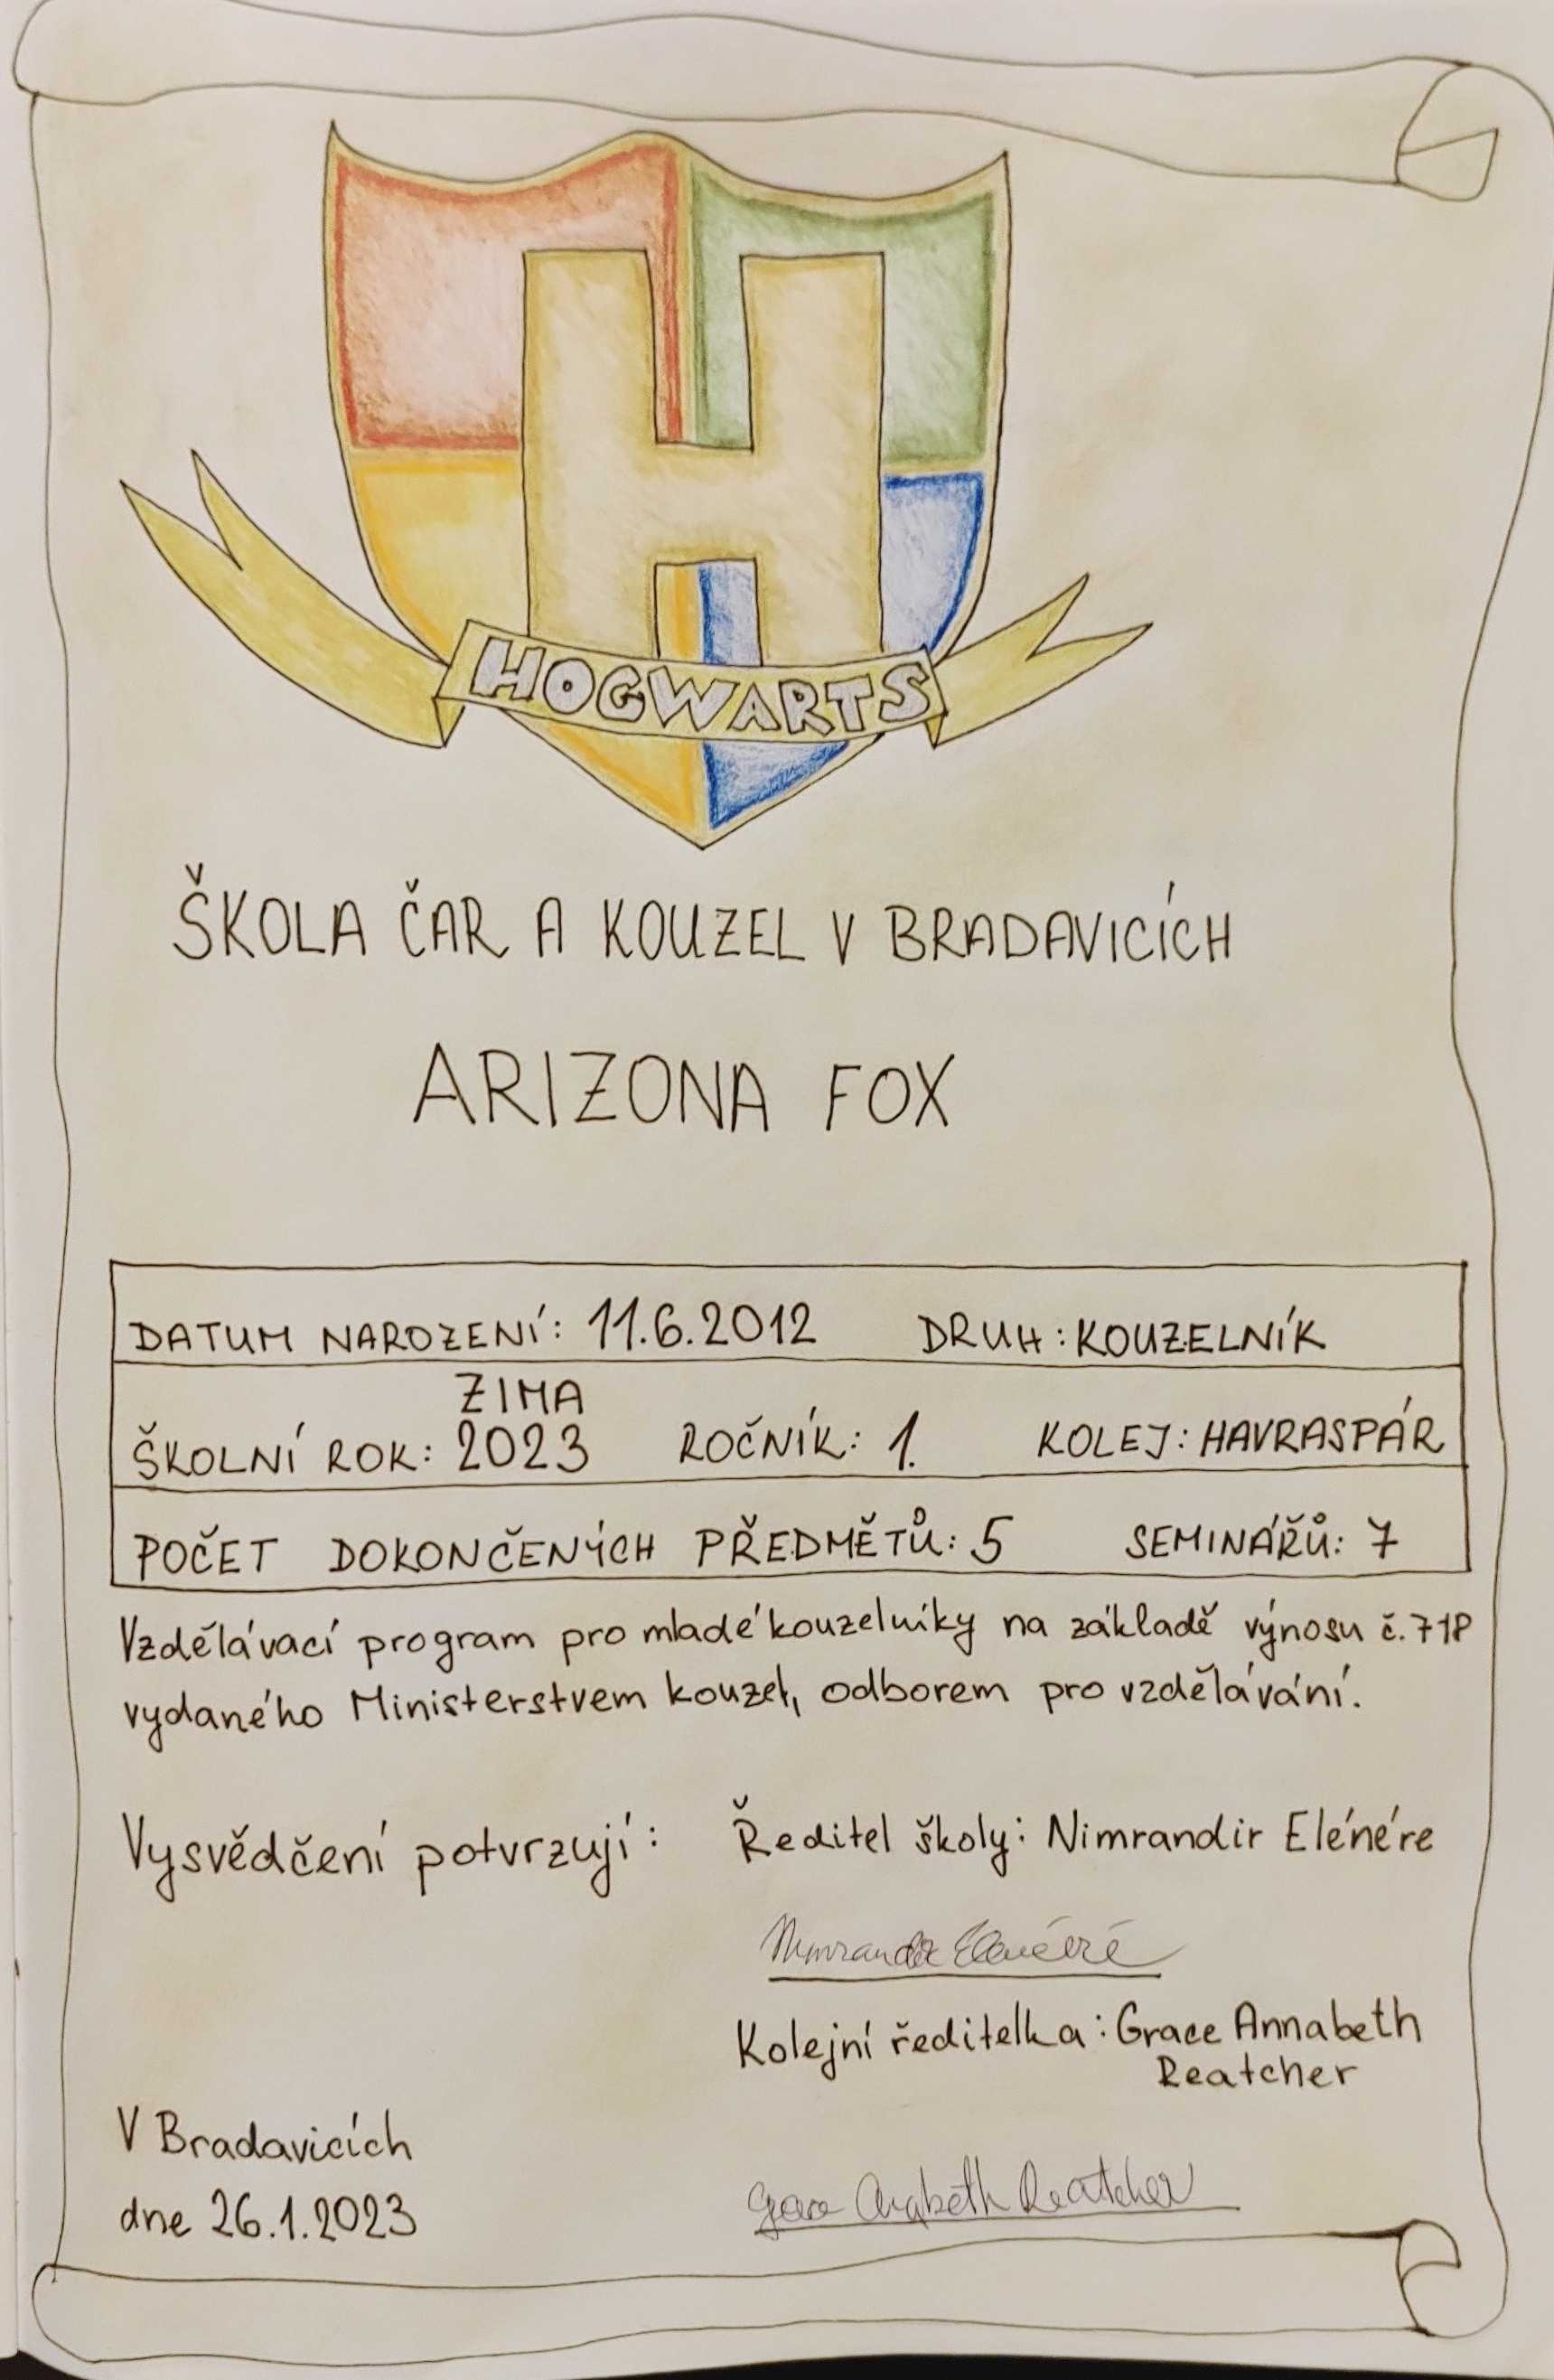 HOGWARTS
ŠKOLA ČAR A KOUZEL V BRADAVICÍCH
ARIZONA FOX
DATUM NAROZENÍ: 11.6.2012 DRUH: KOUZELNÍK
ZIMA
ŠKOLNÍ ROK: 2023 ROČNÍK: 1. KOLEJ: HAVRASPÁR
POČET DOKONČENÝCH PŘEDMĚTŮ: 5 SEMINÁŘŮ: 7
Vzdělávací program pro mladé kouzelníky na základě výnosu č. 718
vydaného Ministerstvem kouzel, odborem pro vzdělávání.
Vysvědčení potvrzují: Ředitel školy: Nimrandir Elénére
Nimrandir Elénére
Kolejní ředitelka: Grace Annabeth
Reatcher
V Bradavicích
dne 26.1.2023
Grace Annabeth Reatcher